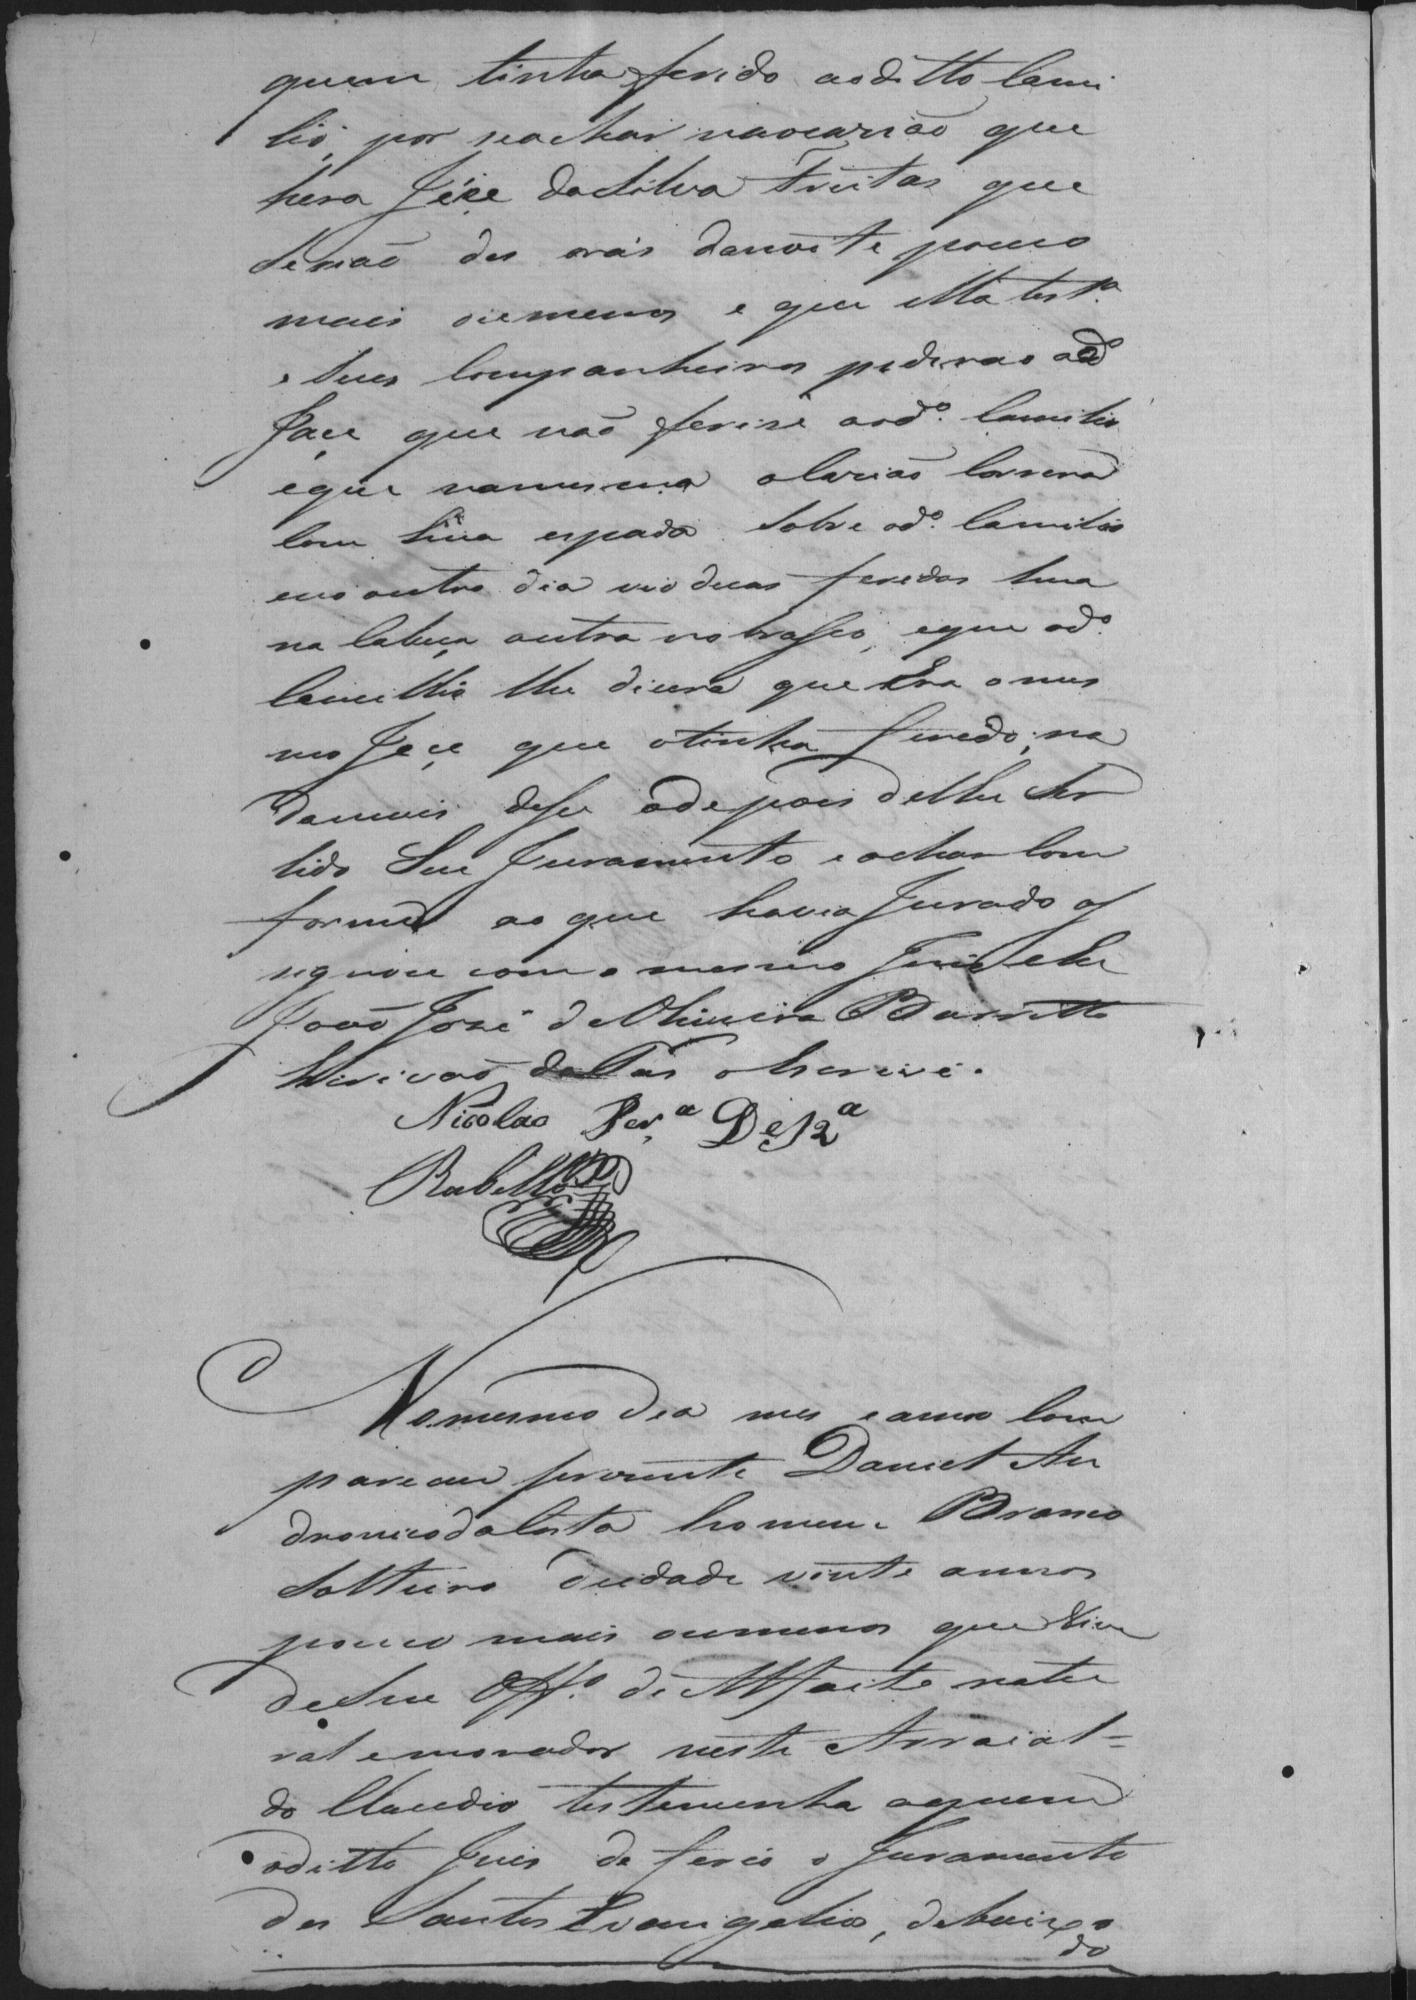 quem tinha ferido aoditto Cami
lio, por seachar naocazião que
hera Józe daSilva Freitas que
Serião des oras danoite pouco
mais oumenos e que ella test.ª
e Seus Companheiros pedirão aod.º
Joze que não ferise aod.º Camilio
eque namesma olarião Correra
Com hũa espada Sobre od.º Camilio
enooutro dia vio duas feridas hua
na Cabeça outra nobrasso, eque od.º
Camillio lhe dicera que Era omes
mo Joze que otinha ferido, na
damais dise edepois delhe Ser
lido Seu Juramento e achar Com
forme ao que havia Jurado a
signou com o mesmo Juis e Eu
João José de Oliveira Barretto
Escrivão da Pas o Escrevi.
Nicolao Per.ª De
Rabello
Nomesmo dia mes eanno Com
pareceu prezente Daniel An
dronico daCosta homem Branco
Solteiro deidade vinte annos
pouco mais oumenos que Vive
deSeu Off.º de Alfaite natu
ral emorador neste Arraial =
do Claudio testemunha aquem
oditto Juis deferio o Juramento
dos Santos Evangelios, debaixo
do